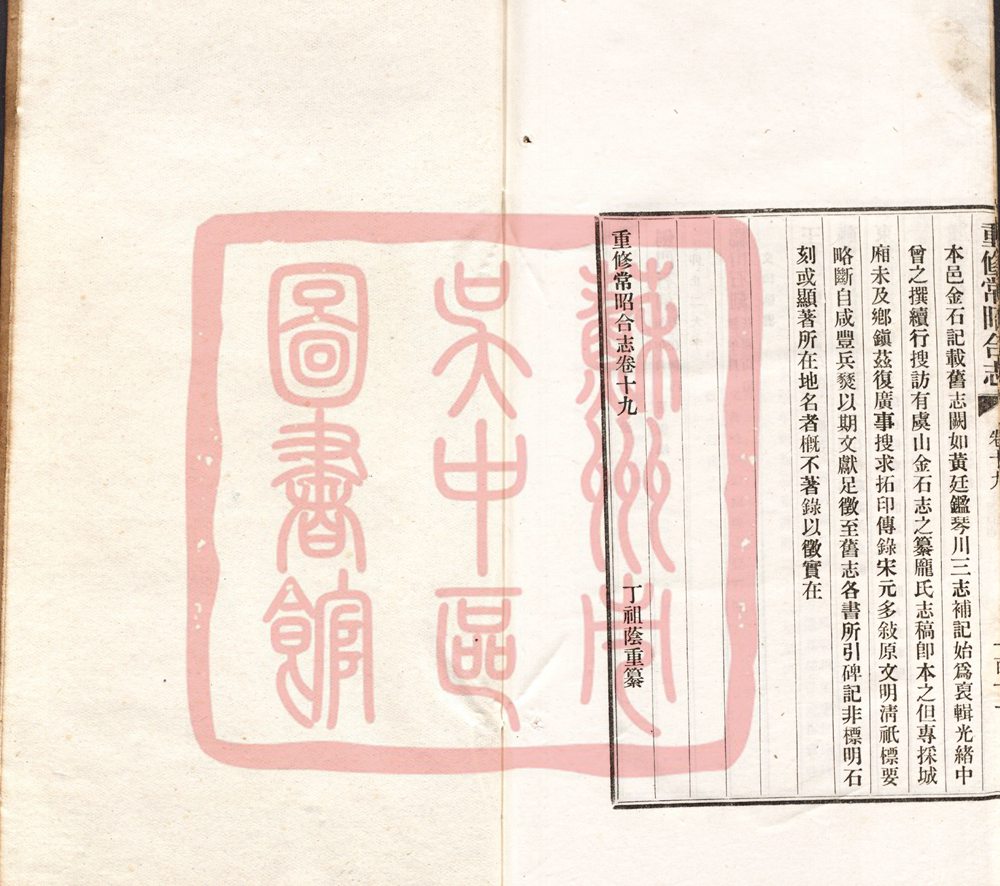 重修常昭合志
卷十九
本邑金石記載舊志闕如黃廷鑑琴川三志補記始爲裒輯光緒中
曾之撰續行搜訪有虞山金石志之纂龐氏志稿卽本之但專採城
廂未及鄉鎮茲復廣事搜求拓印傳錄宋元多敍原文明清祇標要
略斷自咸豐兵燹以期文獻足徵至舊志各書所引碑記非標明石
刻或顯著所在地名者槪不著錄以徵實在
重修常昭合志卷十九
丁祖蔭重纂
蘇州市
吳中區
圖書館